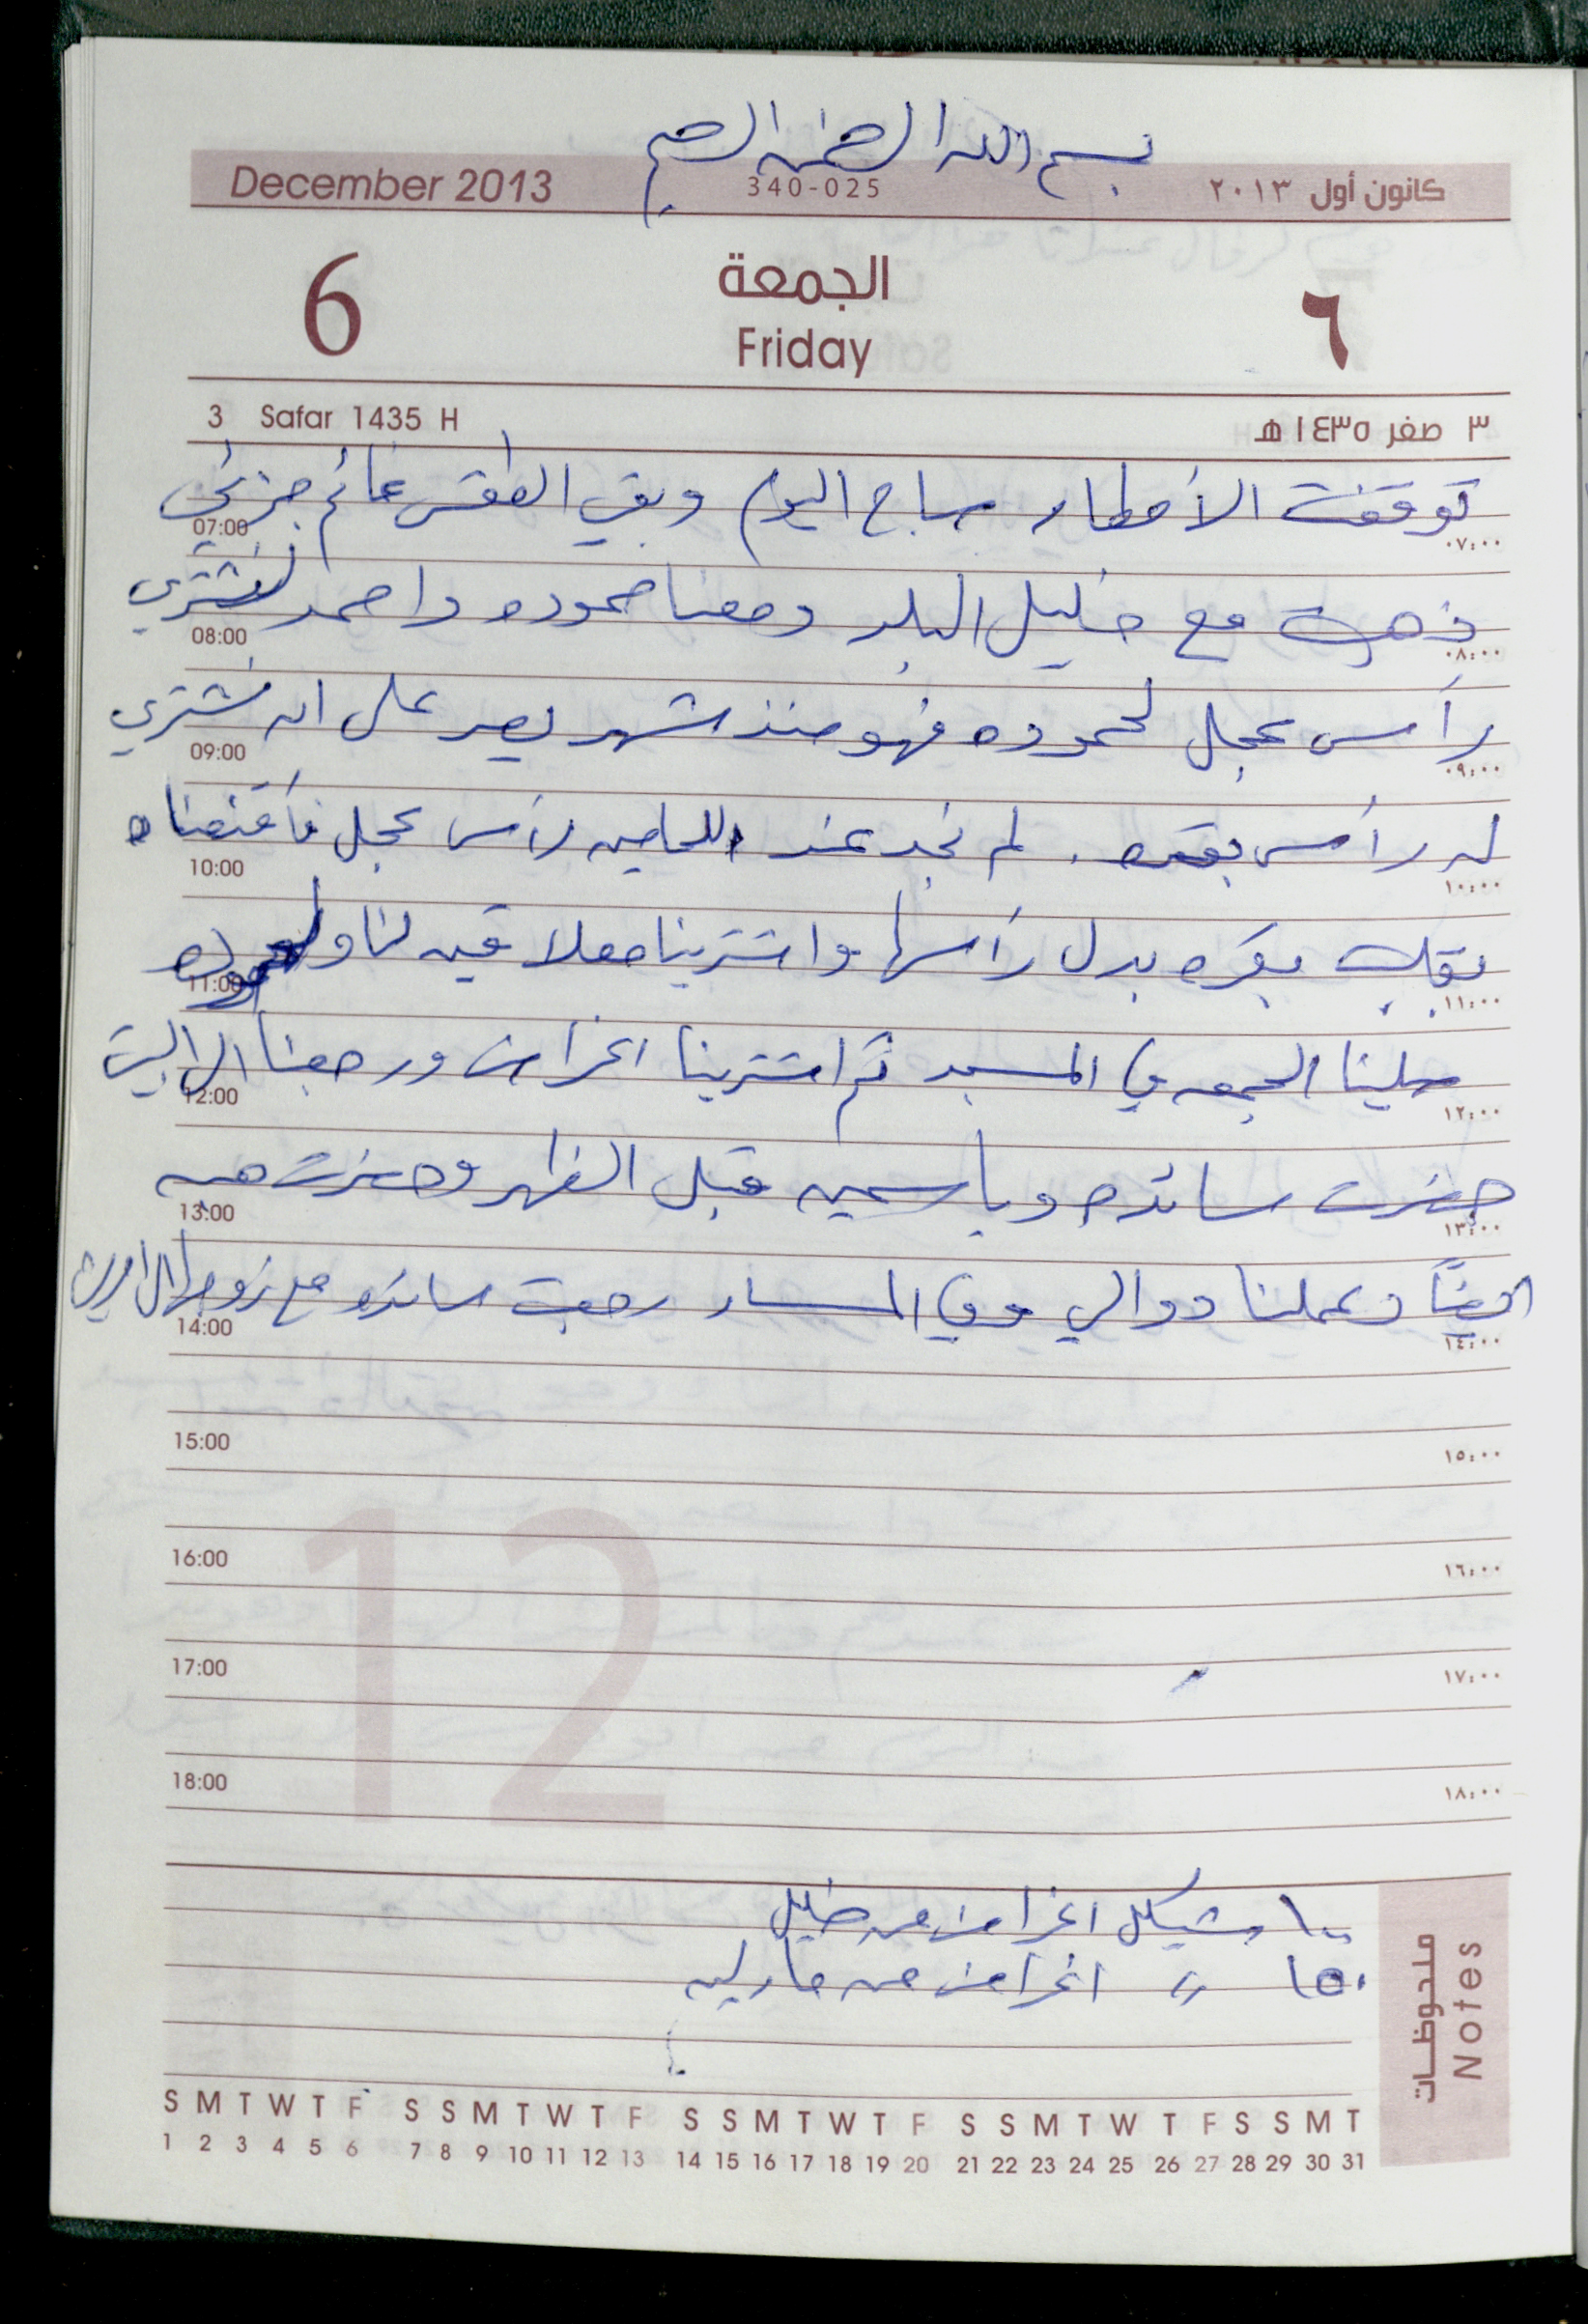 بسم الله الرحمن الرحيم
December 2013 340-025 كانون أول ٢٠١٣
6 الجمعة ٦
Friday
3 Safar 1435 H ٣ صفر ١٤٣٥ هـ
توقفت الأمطار صباح اليوم وبقي الطقس غائم جزئي
07:00 ٠٧:٠٠
ذهبت مع خليل البلد ومعنا حموده واحمد لنشتري
08:00 ٠٨:٠٠
رأس عجل لحموده فهو منذ شهر يصر على ان نشتري
09:00 ٠٩:٠٠
له رأس بقره . لم نجد عند اللحامين رأس عجل فأقنعناه
10:00 ١٠:٠٠
بقلب بقره بدل رأسها واشترينا معلاقين لنا ولحموده
11:00 ١١:٠٠
صلينا الجمعه في المسجد ثم اشترينا اغراض ورجعنا الى البيت
12:00 ١٢:٠٠
حضرت سائده وياسمين قبل الظهر وحضرت هبه
13:00 ١٣:٠٠
ايضاً وعملنا دوالي وفي المساء رجعت سائده مع زوجها الى
14:00 ١٤:٠٠
15:00 ١٥:٠٠
16:00 ١٦:٠٠
17:00 ١٧:٠٠
18:00 ١٨:٠٠
12
١٠٠ شيكل اغراض من خليل
١٥٠ " اغراض من
ملحوظات
Notes
S M T W T F S S M T W T F S S M T W T F S S M T W T F S S M T
1 2 3 4 5 6 7 8 9 10 11 12 13 14 15 16 17 18 19 20 21 22 23 24 25 26 27 28 29 30 31